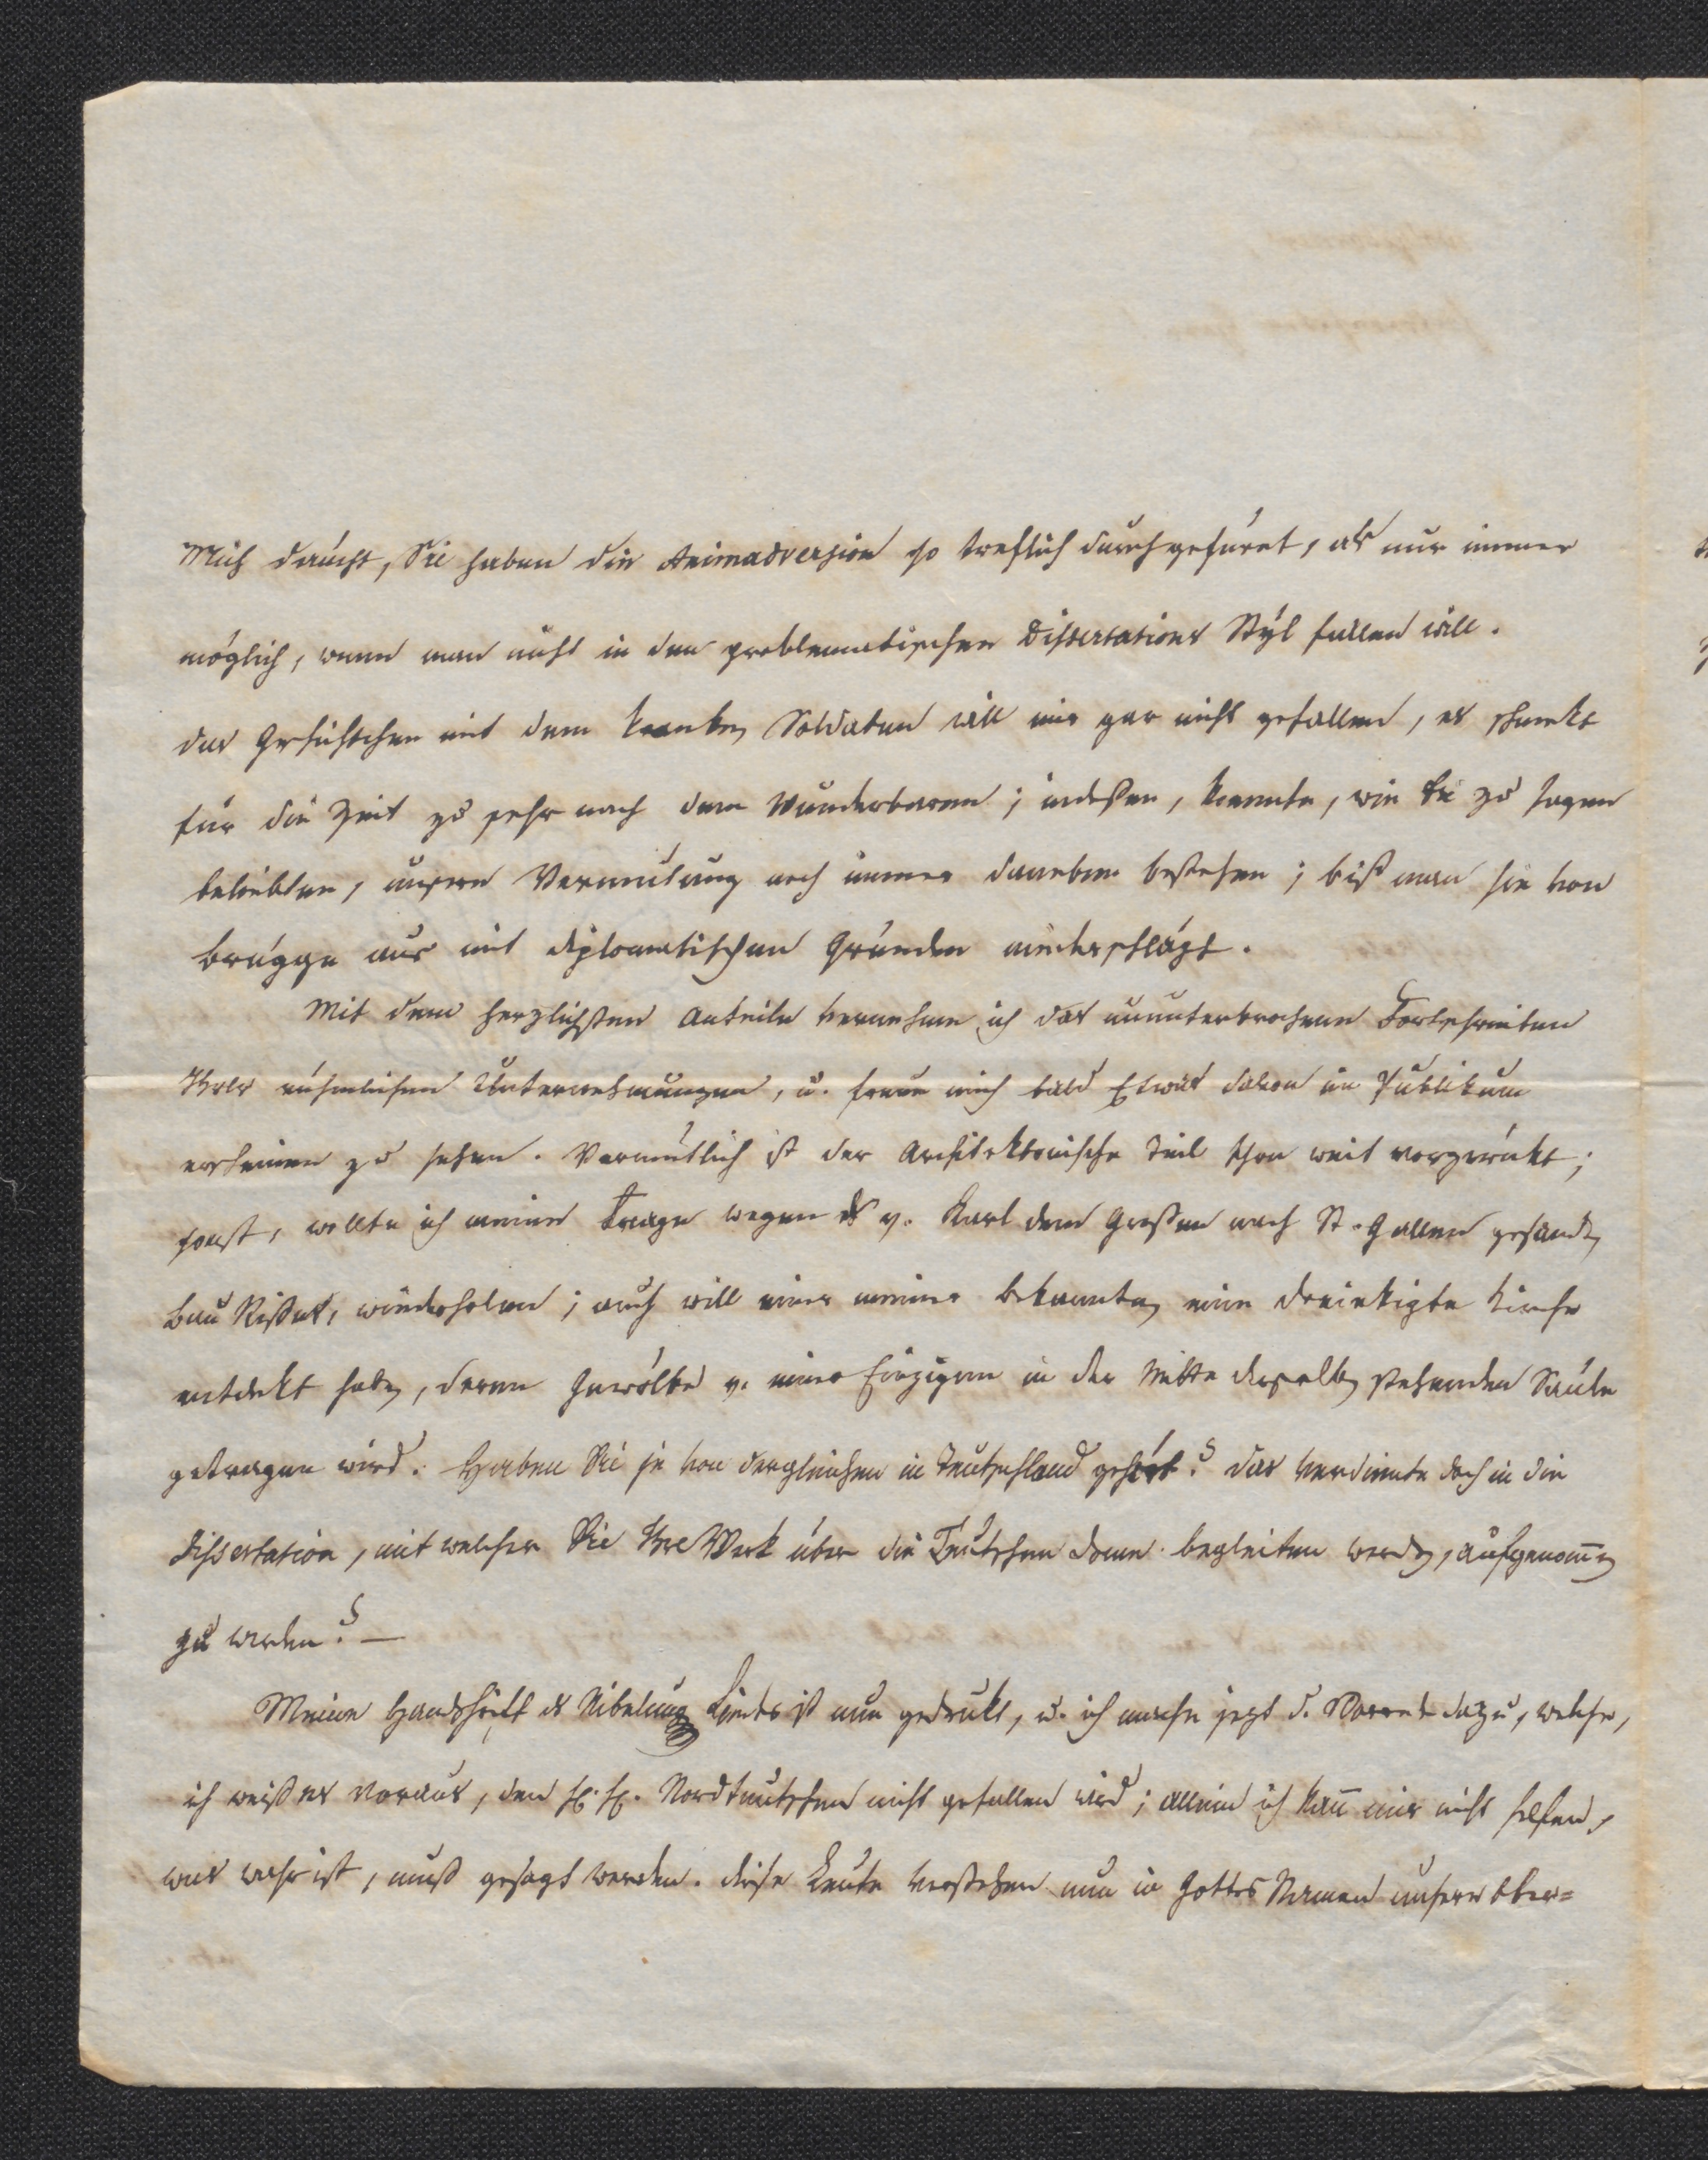 Mich däucht, Sie haben die Animadversion so treflich durchgefürt, als nur immer
möglich, wenn man nicht in den problematischen Dissertations Styl fallen will.
das Geschichtchen mit dem kranken Soldaten will mir gar nicht gefallen, es schmekt
für die Zeit zu sehr nach dem Wunderbaren; indeßen, kennte, wie Sie zu sagen
beliebten, unsere Vermutung noch immer daneben bestehen; biß man sie von
Brügge aus mit diplomatischen Gründen niederschlägt.
Mit dem herzlichsten Anteile vernehme ich das ununterbrochene Fortschreiten
Ihrer rühmlichen Unternehmungen, u. freue mich bald Etwas davon im Publikum
erscheinen zu sehen. Vermutlich ist der Architektonische Teil schon weit vorgerükt;
sonst, wollte ich meine Frage wegen ds v. Karl dem Großen nach St. Gallen gesandten
Bau Rißes, wiederholen; auch will einer meiner Bekannten eine dreiekigte Kirche
entdekt haben, deren Gewölbe v. einer Einzigen in der Mitte derselben stehenden Säule
getragen wird. Haben Sie je von dergleichen in Teutschland gehört? das verdiente doch in die
Dissertation, mit welcher Sie Ihre Werk über die Teutschen Dome begleiten werden, aufgenom̅en
zu werden? —
Meine Handschrift ds Nibelungen Liedes ist nun gedrukt, u. ich mache jezt d. Vorrede dazu, welche,
ich weiß es voraus, den H. H. Nordteutschen nicht gefallen wird; allein ich kan̅ mir nicht helfen,
was wahr ist, muß gesagt werden. diese Leute verstehen nun in Gottes Namen unsere Ober=